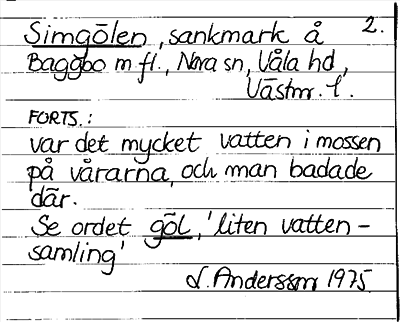 Simgölen, sankmark å 2.
Baggbo m fl., Nora sn, Våla hd,
Västm. l.
FORTS.:
var det mycket vatten i mossen
på vårarna, och man badade
där.
Se ordet göl, 'liten vatten-
samling'
L. Andersson 1975